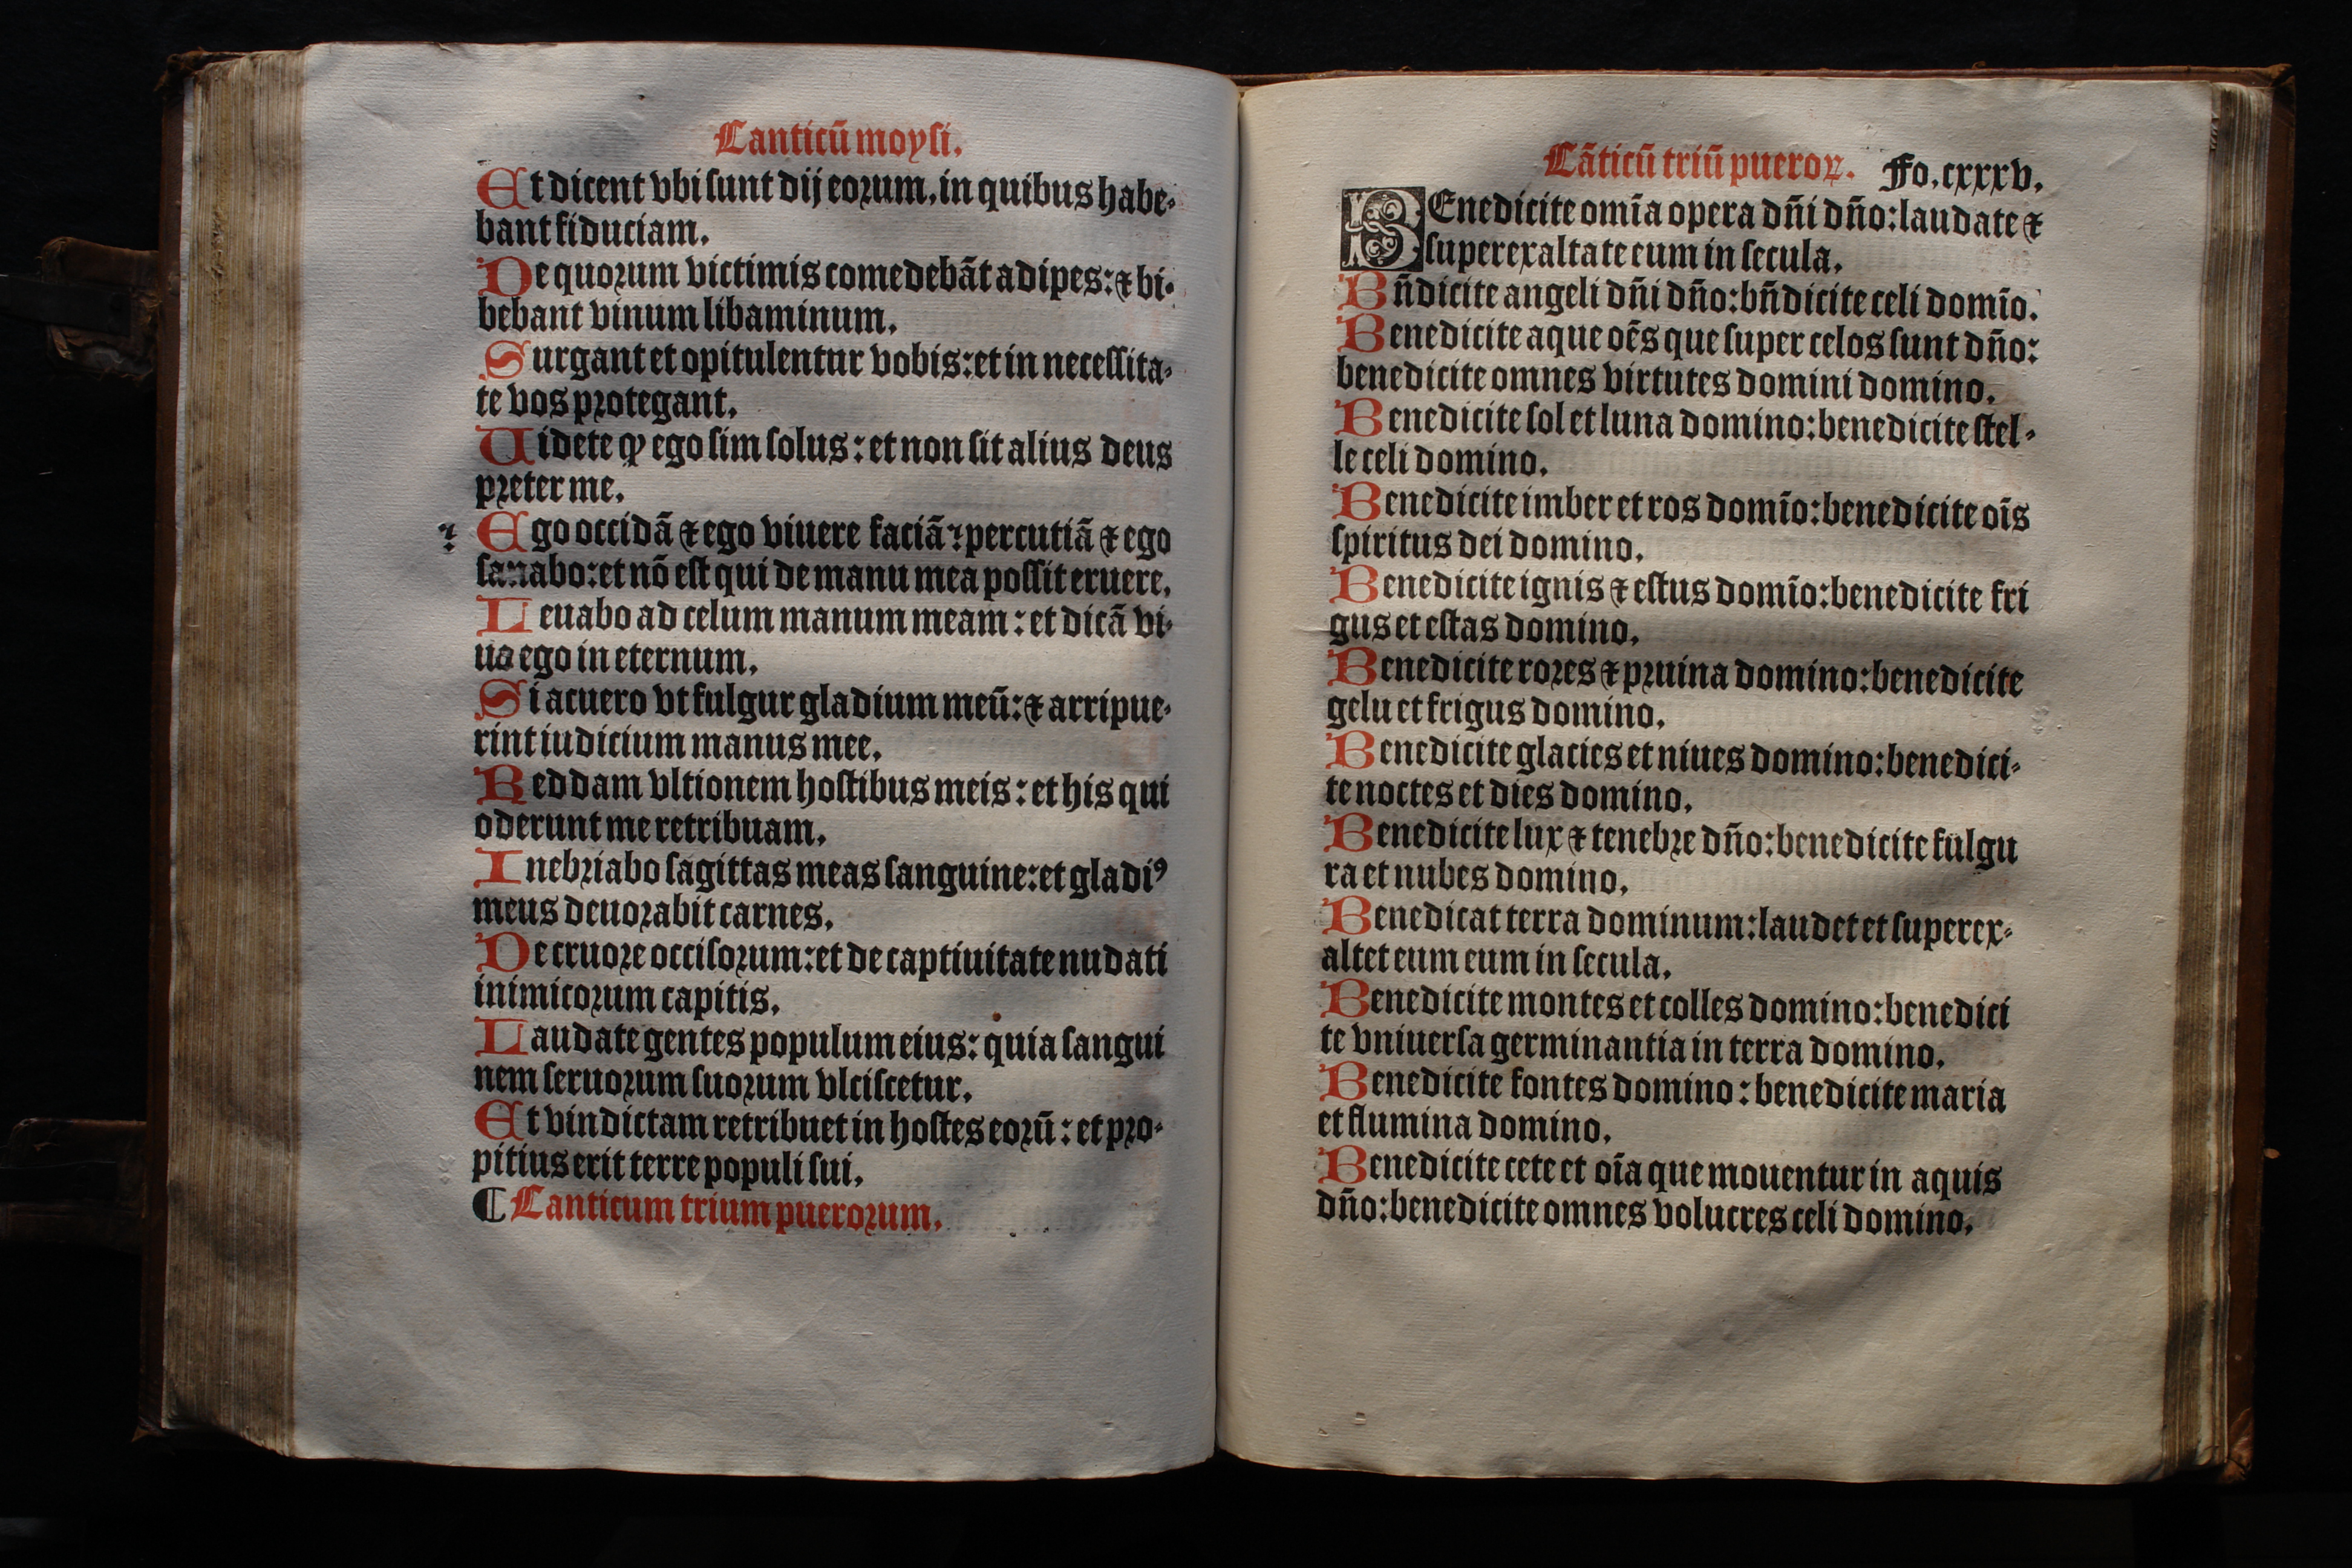 Canticū moysi.
Et dicent vbi sunt dij eorum, in quibus habe-
bant fiduciam.
De quorum victimis comedebāt adipes: ⁊ bi-
bebant vinum libaminum.
Surgant et opitulentur vobis: et in necessita-
te vos protegant.
Uidete ꝙ ego sim solus: et non sit alius deus
preter me.
⁊ Ego occidā ⁊ ego viuere faciā: percutiā ⁊ ego
sanabo: et nō est qui de manu mea possit eruere.
Leuabo ad celum manum meam: et dicā vi-
uo ego in eternum.
Si acuero vt fulgur gladium meū: ⁊ arripue-
rint iudicium manus mee.
Reddam vltionem hostibus meis: et his qui
oderunt me retribuam.
Inebriabo sagittas meas sanguine: et gladiꝰ
meus deuorabit carnes.
De cruore occisorum: et de captiuitate nudati
inimicorum capitis.
Laudate gentes populum eius: quia sangui
nem seruorum suorum vlciscetur.
Et vindictam retribuet in hostes eorū: et pro-
pitius erit terre populi sui.
¶ Canticum trium puerorum.
Cāticū triū pueroꝝ. Fo. cxxxv.
BEnedicite omīa opera dn̄i dn̄o: laudate ⁊
superexaltate eum in secula.
Bn̄dicite angeli dn̄i dn̄o: bn̄dicite celi domīo.
Benedicite aque oēs que super celos sunt dn̄o:
benedicite omnes virtutes domini domino.
Benedicite sol et luna domino: benedicite stel-
le celi domino.
Benedicite imber et ros domīo: benedicite oīs
spiritus dei domino.
Benedicite ignis ⁊ estus domīo: benedicite fri
gus et estas domino.
Benedicite rores ⁊ pruina domino: benedicite
gelu et frigus domino.
Benedicite glacies et niues domino: benedici-
te noctes et dies domino.
Benedicite lux ⁊ tenebre dn̄o: benedicite fulgu
ra et nubes domino.
Benedicat terra dominum: laudet et superex-
altet eum eum in secula.
Benedicite montes et colles domino: benedici
te vniuersa germinantia in terra domino.
Benedicite fontes domino: benedicite maria
et flumina domino.
Benedicite cete et oīa que mouentur in aquis
dn̄o: benedicite omnes volucres celi domino.